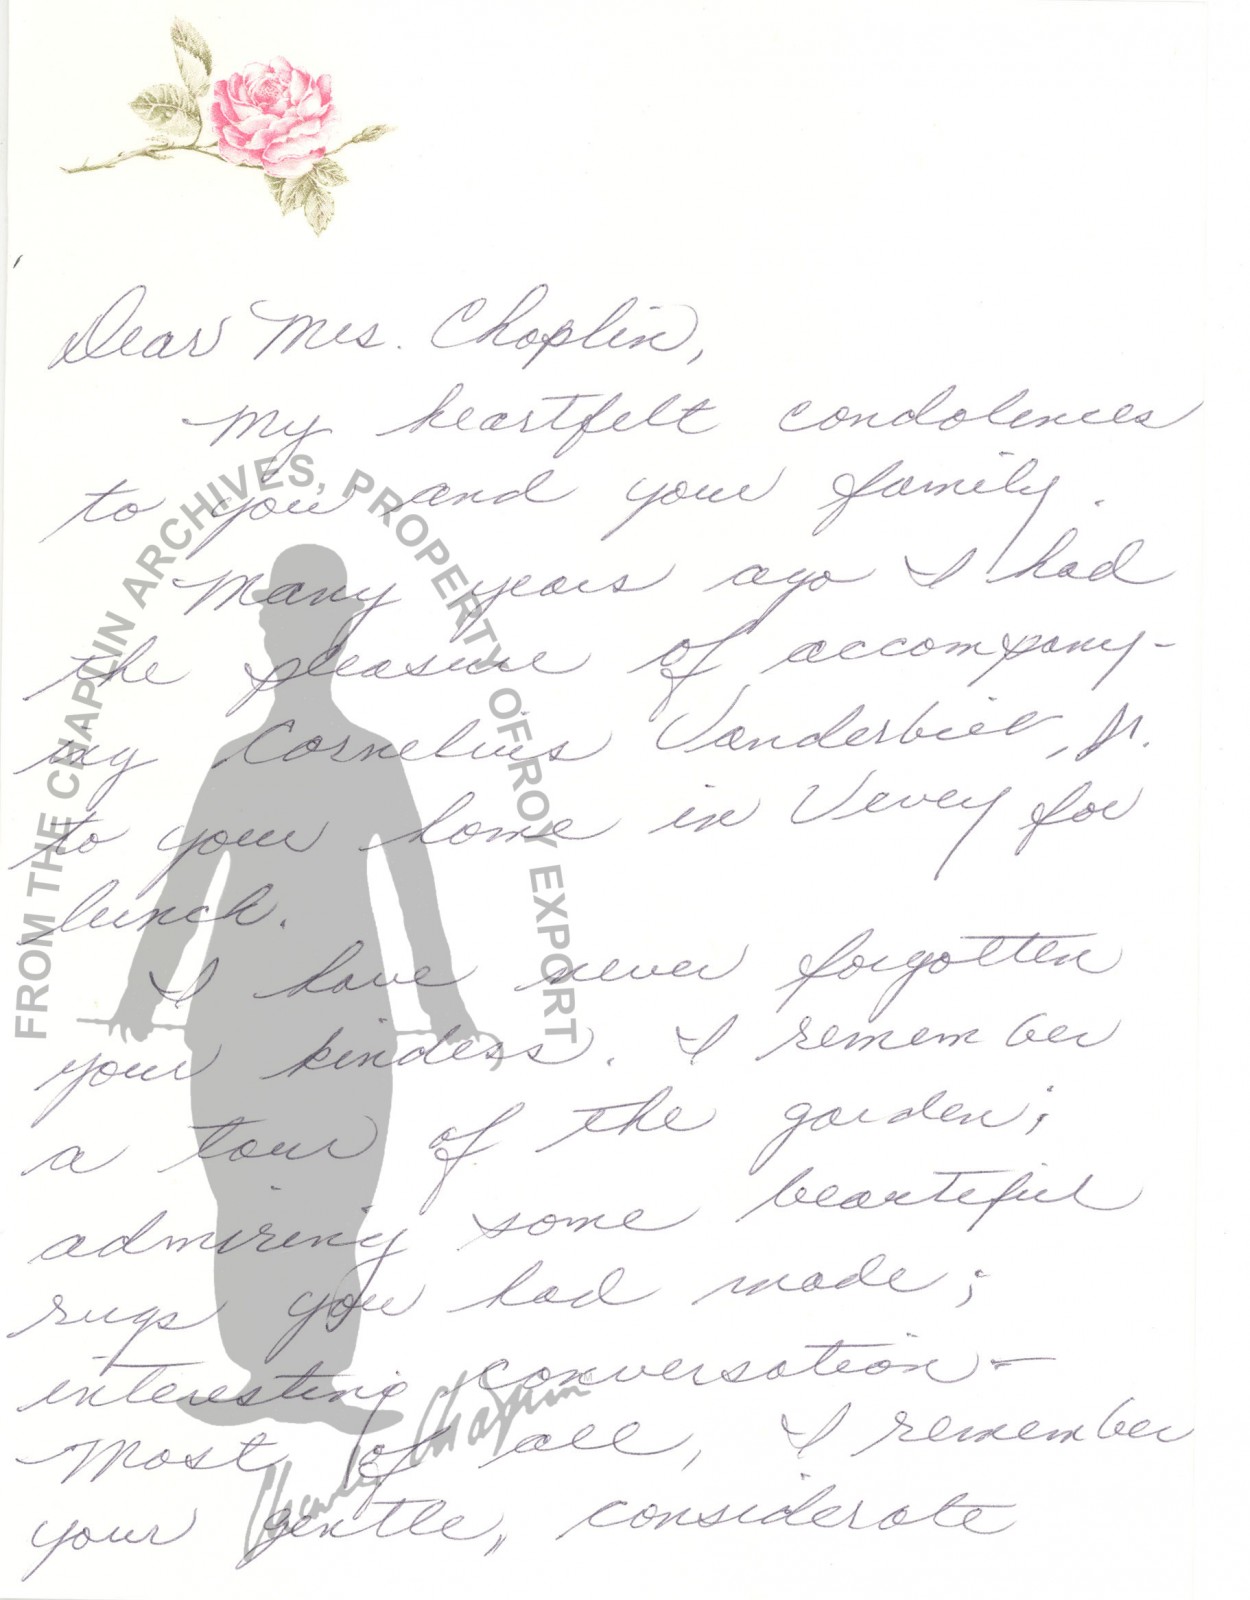 Dear Mrs. Chaplin,
My heartfelt condolences
to you and your family.
Many years ago I had
the pleasure of accompany-
ing Cornelius Vanderbilt, Jr.
to your home in Vevey for
lunch.
I have never forgotten
your kindess. I remember
a tour of the garden;
admiring some beautiful
rugs you had made;
interesting conversation -
Most of all, I remember
your gentle, considerate
FROM THE CHAPLIN ARCHIVES, PROPERTY OF ROY EXPORT
Charlie Chaplin